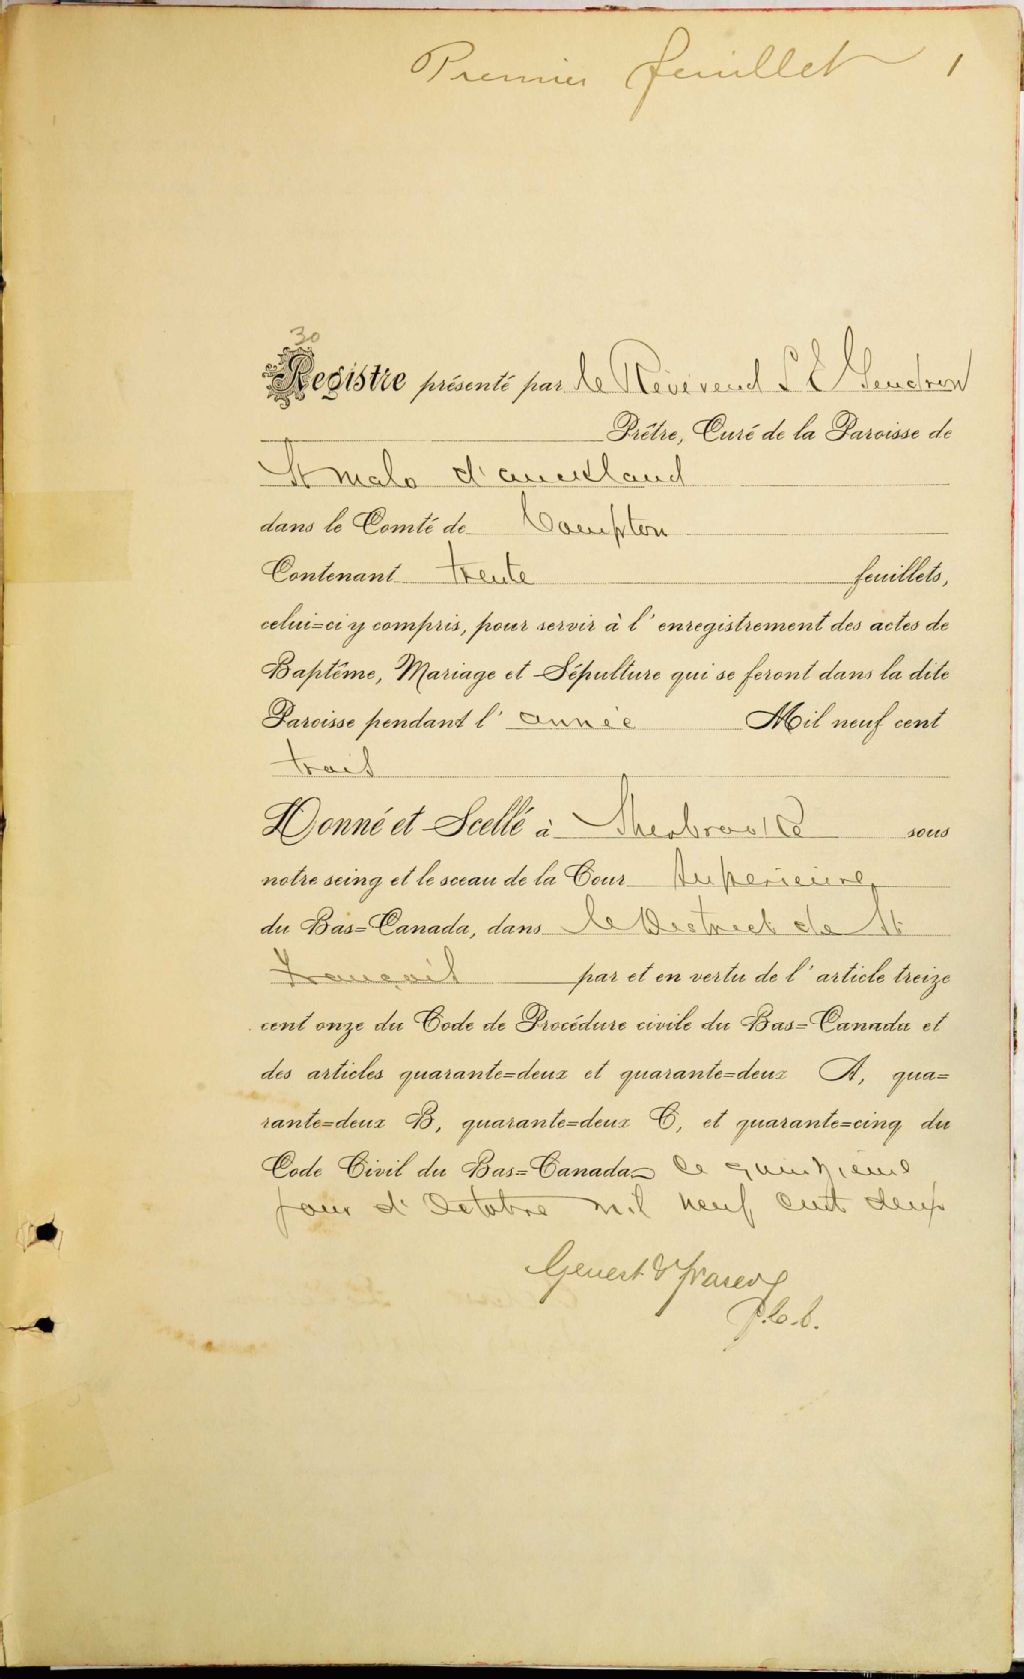 Premier feuillet 1
30
Registre présenté par le Révérend L E Gendron
Prêtre, Curé de la Paroisse de
St Malo d'auckland
dans le Comté de Compton
Contenant trente feuillets,
celui=ci y compris, pour servir à l'enregistrement des actes de
Baptême, Mariage et Sépulture qui se feront dans la dite
Paroisse pendant l'année Mil neuf cent
trois
Donné et Scellé à Sherbrooke sous
notre seing et le sceau de la Cour Superieure
du Bas=Canada, dans le District de St
François par et en vertu de l'article treize
cent onze du Code de Procédure civile du Bas=Canada et
des articles quarante=deux et quarante=deux A, qua=
rante=deux B, quarante=deux C, et quarante=cinq du
Code Civil du Bas=Canada ce quinzieme
jour d'Octobre mil neuf cent deux
Genest &
P.C.S.